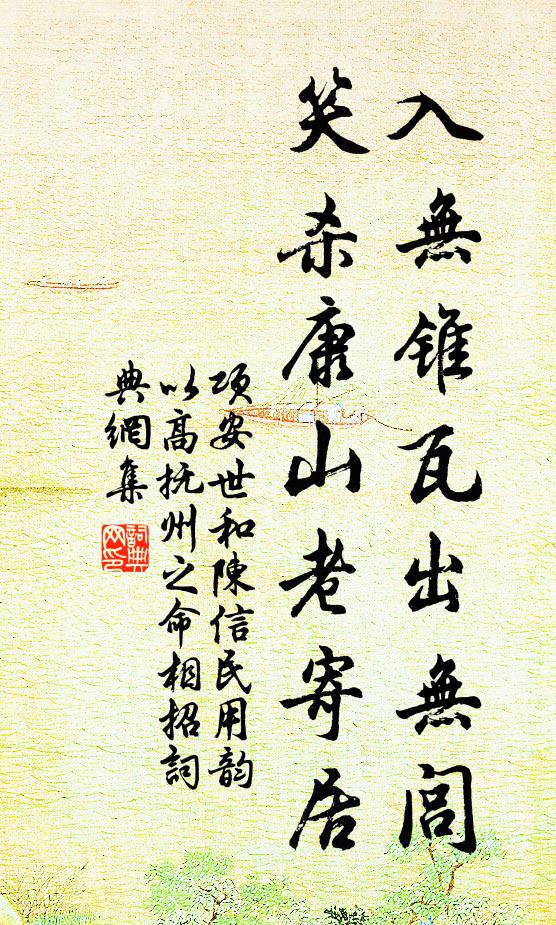 入無錐瓦出無閭
笑杀康山老寄居
項安世和陳信民用韵
以高抚州之命相招詞
典網集
詞典网印